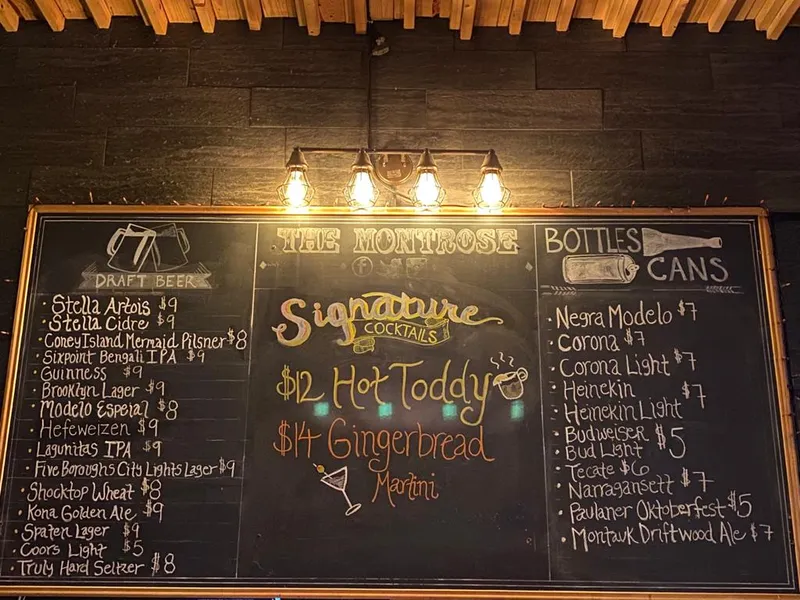 DRAFT BEER
· Stella Artois $9
· Stella Cidre $9
· Coney Island Mermaid Pilsner $8
· Sixpoint Bengali IPA $9
· Guinness $9
· Brooklyn Lager $9
· Modelo Espeial $8
· Hefeweizen $9
· Lagunitas IPA $9
· Five Boroughs City Lights Lager $9
· Shocktop Wheat $8
· Kona Golden Ale $9
· Spaten Lager $9
· Coors Light $5
· Truly Hard Seltzer $8
THE MONTROSE
Signature
COCKTAILS
$12 Hot Toddy
$14 Gingerbread
Martini
BOTTLES
CANS
· Negra Modelo $7
· Corona $7
· Corona Light $7
· Heinekin $7
· Heinekin Light
· Budweiser $5
· Bud Light
· Tecate $6
· Narragansett $7
· Paulaner Oktoberfest $5
· Montauk Driftwood Ale $7